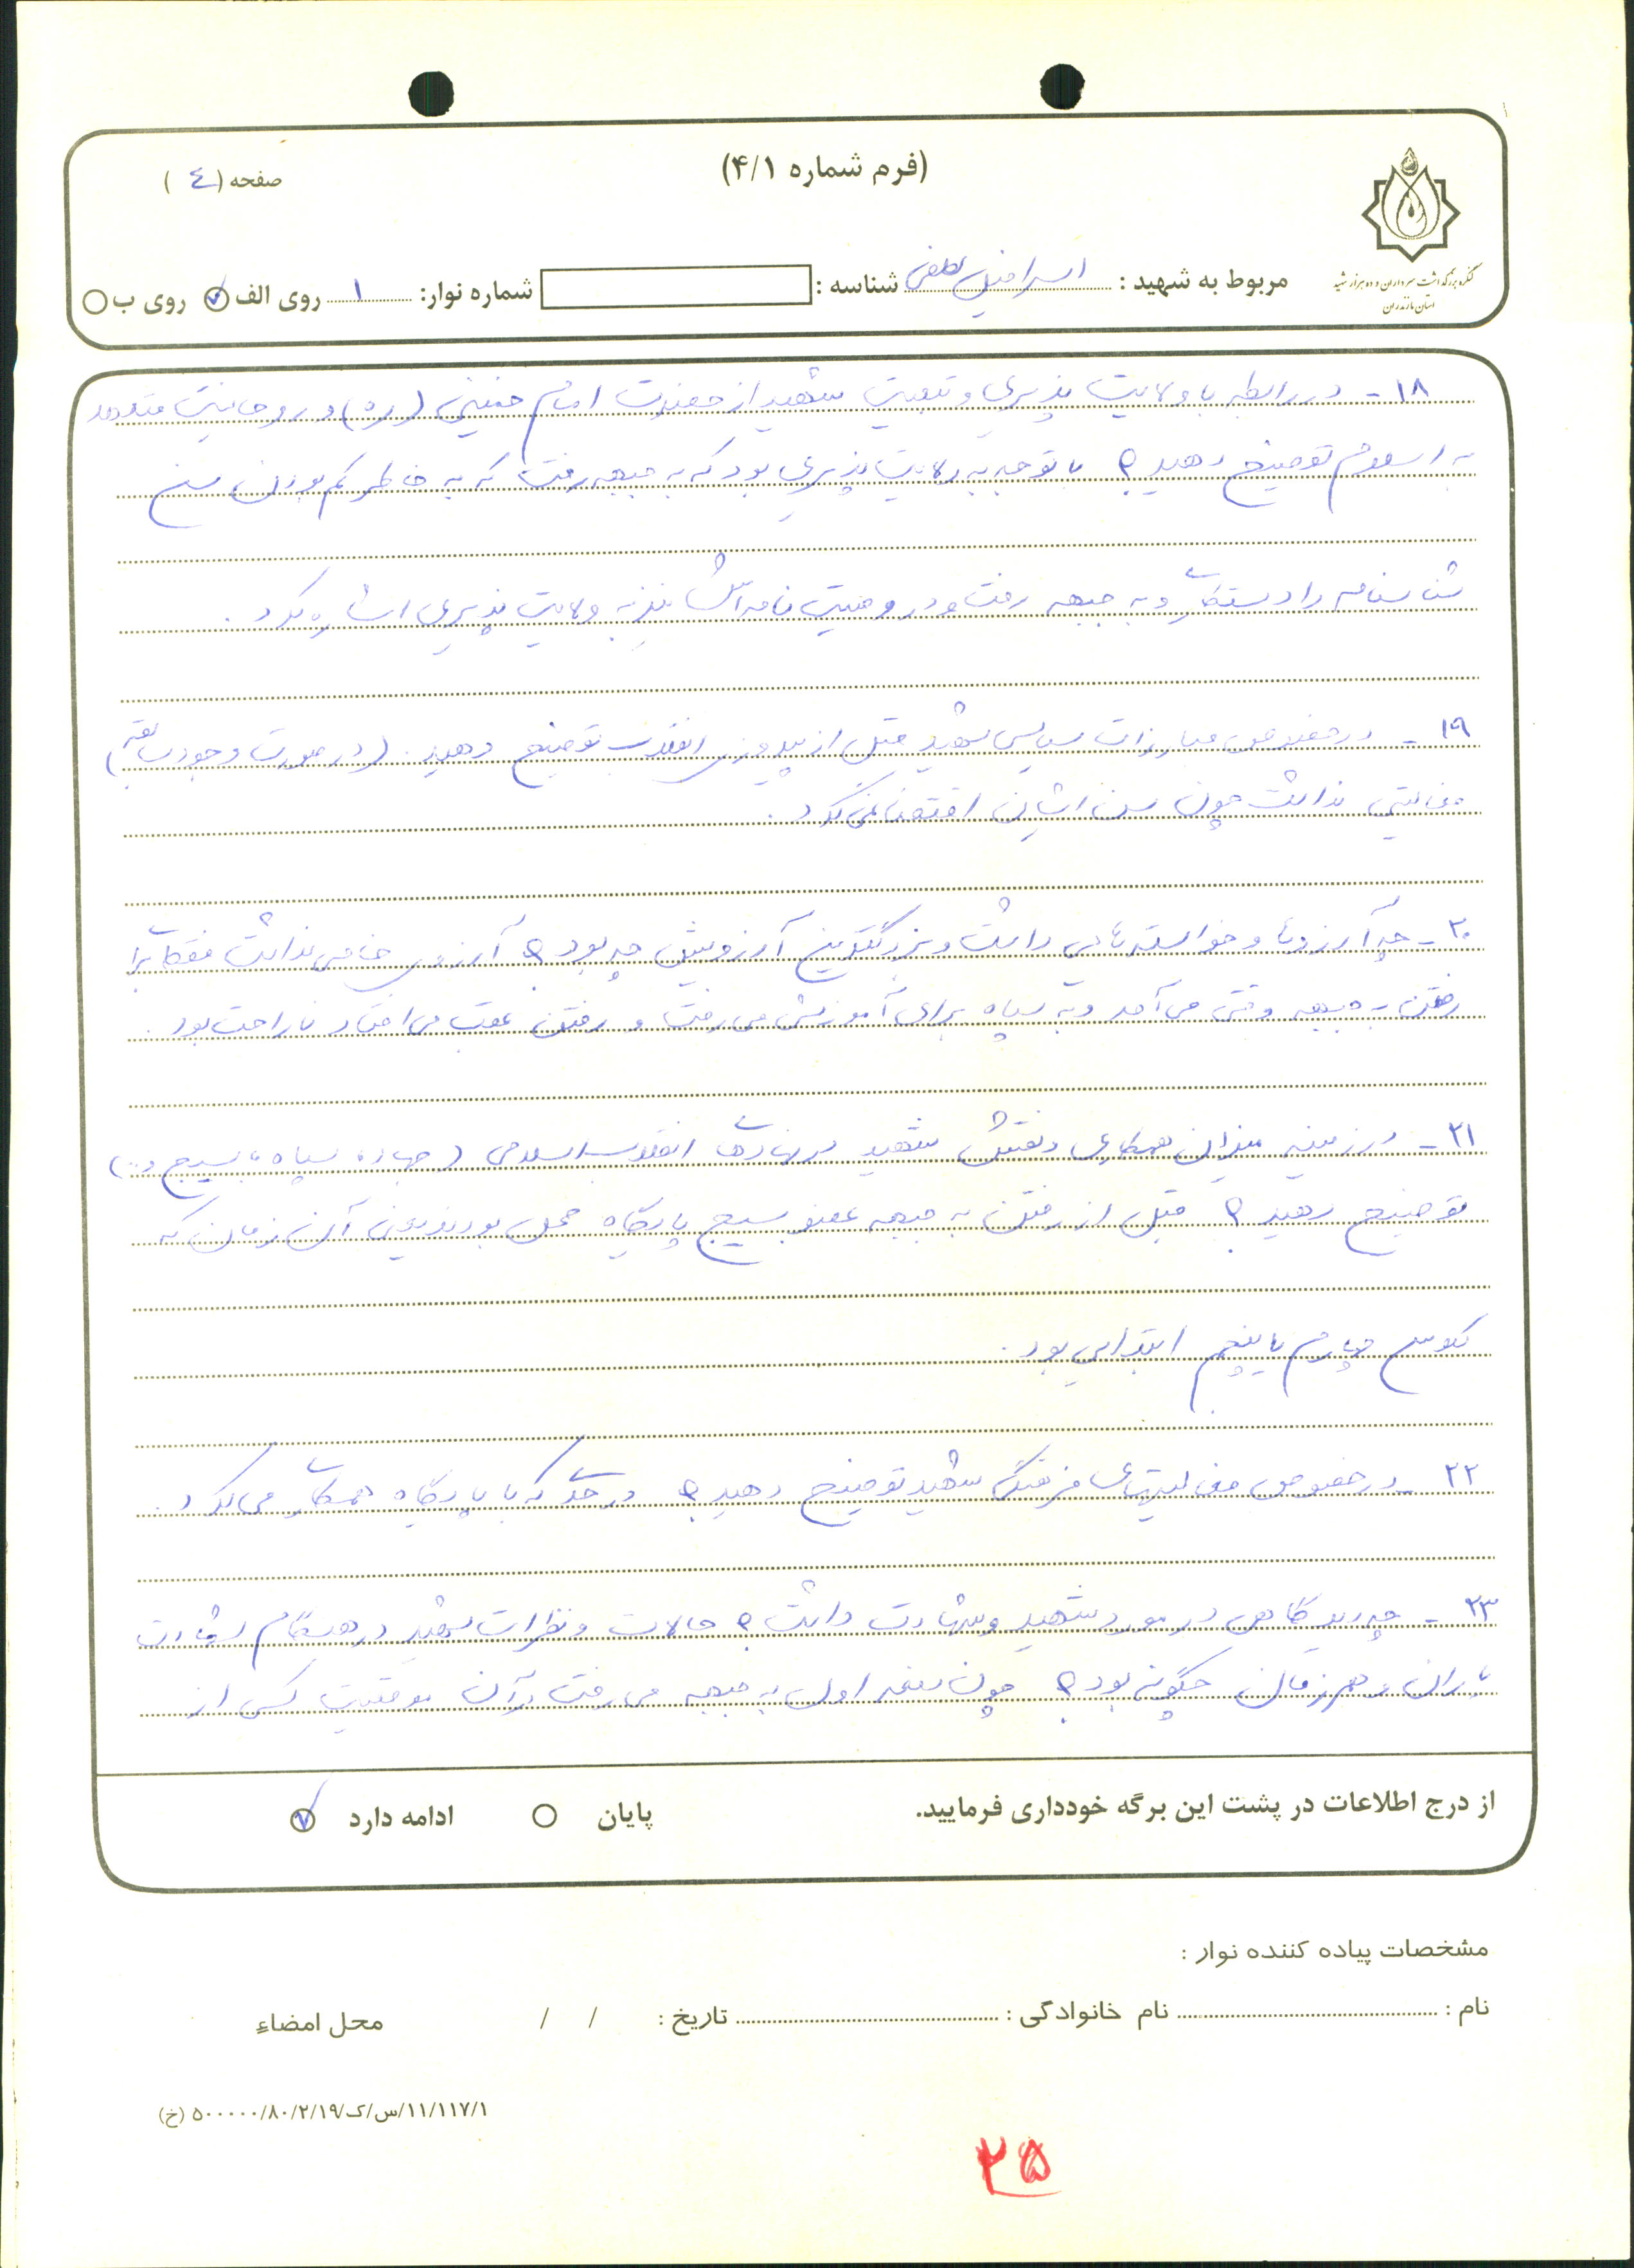 (فرم شماره ۴/۱)
صفحه (٤)
کنگره بزرگداشت سرداران و ده هزار شهید
استان مازندران
مربوط به شهید : اسرافیل لطفی شناسه : شماره نوار: ۱ روی الف روی ب
۱۸ - در رابطه با ولایت پذیری و تبعیت شهید از حضرت امام خمینی (ره) و روحانیت متعهد
به اسلام توضیح دهید؟ با توجه به ولایت پذیری بود که به جبهه رفت که به خاطر کم بودن سن
شناسنامه را دستکاری و به جبهه رفت و در وصیت نامه اش نیز به ولایت پذیری اشاره کرد.
۱۹ - در خصوص مبارزات سیاسی شهید قبل از پیروزی انقلاب توضیح دهید. (در صورت وجود سابقه)
فعالیتی نداشت چون سن ایشان اقتضا نمی کرد.
۲۰ - چه آرزوها و خواسته هایی داشت و بزرگترین آرزویش چه بود؟ آرزوی خاصی نداشت فقط برای
رفتن به جبهه وقتی می آمد و به سپاه برای آموزش می رفت و رفتن عقب می افتاد ناراحت بود.
۲۱ - در زمینه میزان همکاری و نقش شهید در نهادهای انقلاب اسلامی (جهاد، سپاه، بسیج و..)
توضیح دهید؟ قبل از رفتن به جبهه عضو بسیج پایگاه محل بودند یعنی آن زمان که
کلاس چهارم یا پنجم ابتدایی بود.
۲۲ - در خصوص فعالیتهای فرهنگی شهید توضیح دهید؟ در حدی که با پایگاه همکاری می کرد.
۲۳ - چه دیدگاهی در مورد شهید و شهادت داشت؟ حالات و نظرات شهید در هنگام شهادت
یاران و همرزمان چگونه بود؟ چون دفعه اول به جبهه می رفت در آن موقعیت کسی از
از درج اطلاعات در پشت این برگه خودداری فرمایید.
پایان ادامه دارد
مشخصات پیاده کننده نوار :
نام : نام خانوادگی : تاریخ : / / محل امضاء
۱۱/۱۱۷/۱/س/ک/۵۰۰۰۰۰/۸۰/۲/۱۹ (خ)
۲۵